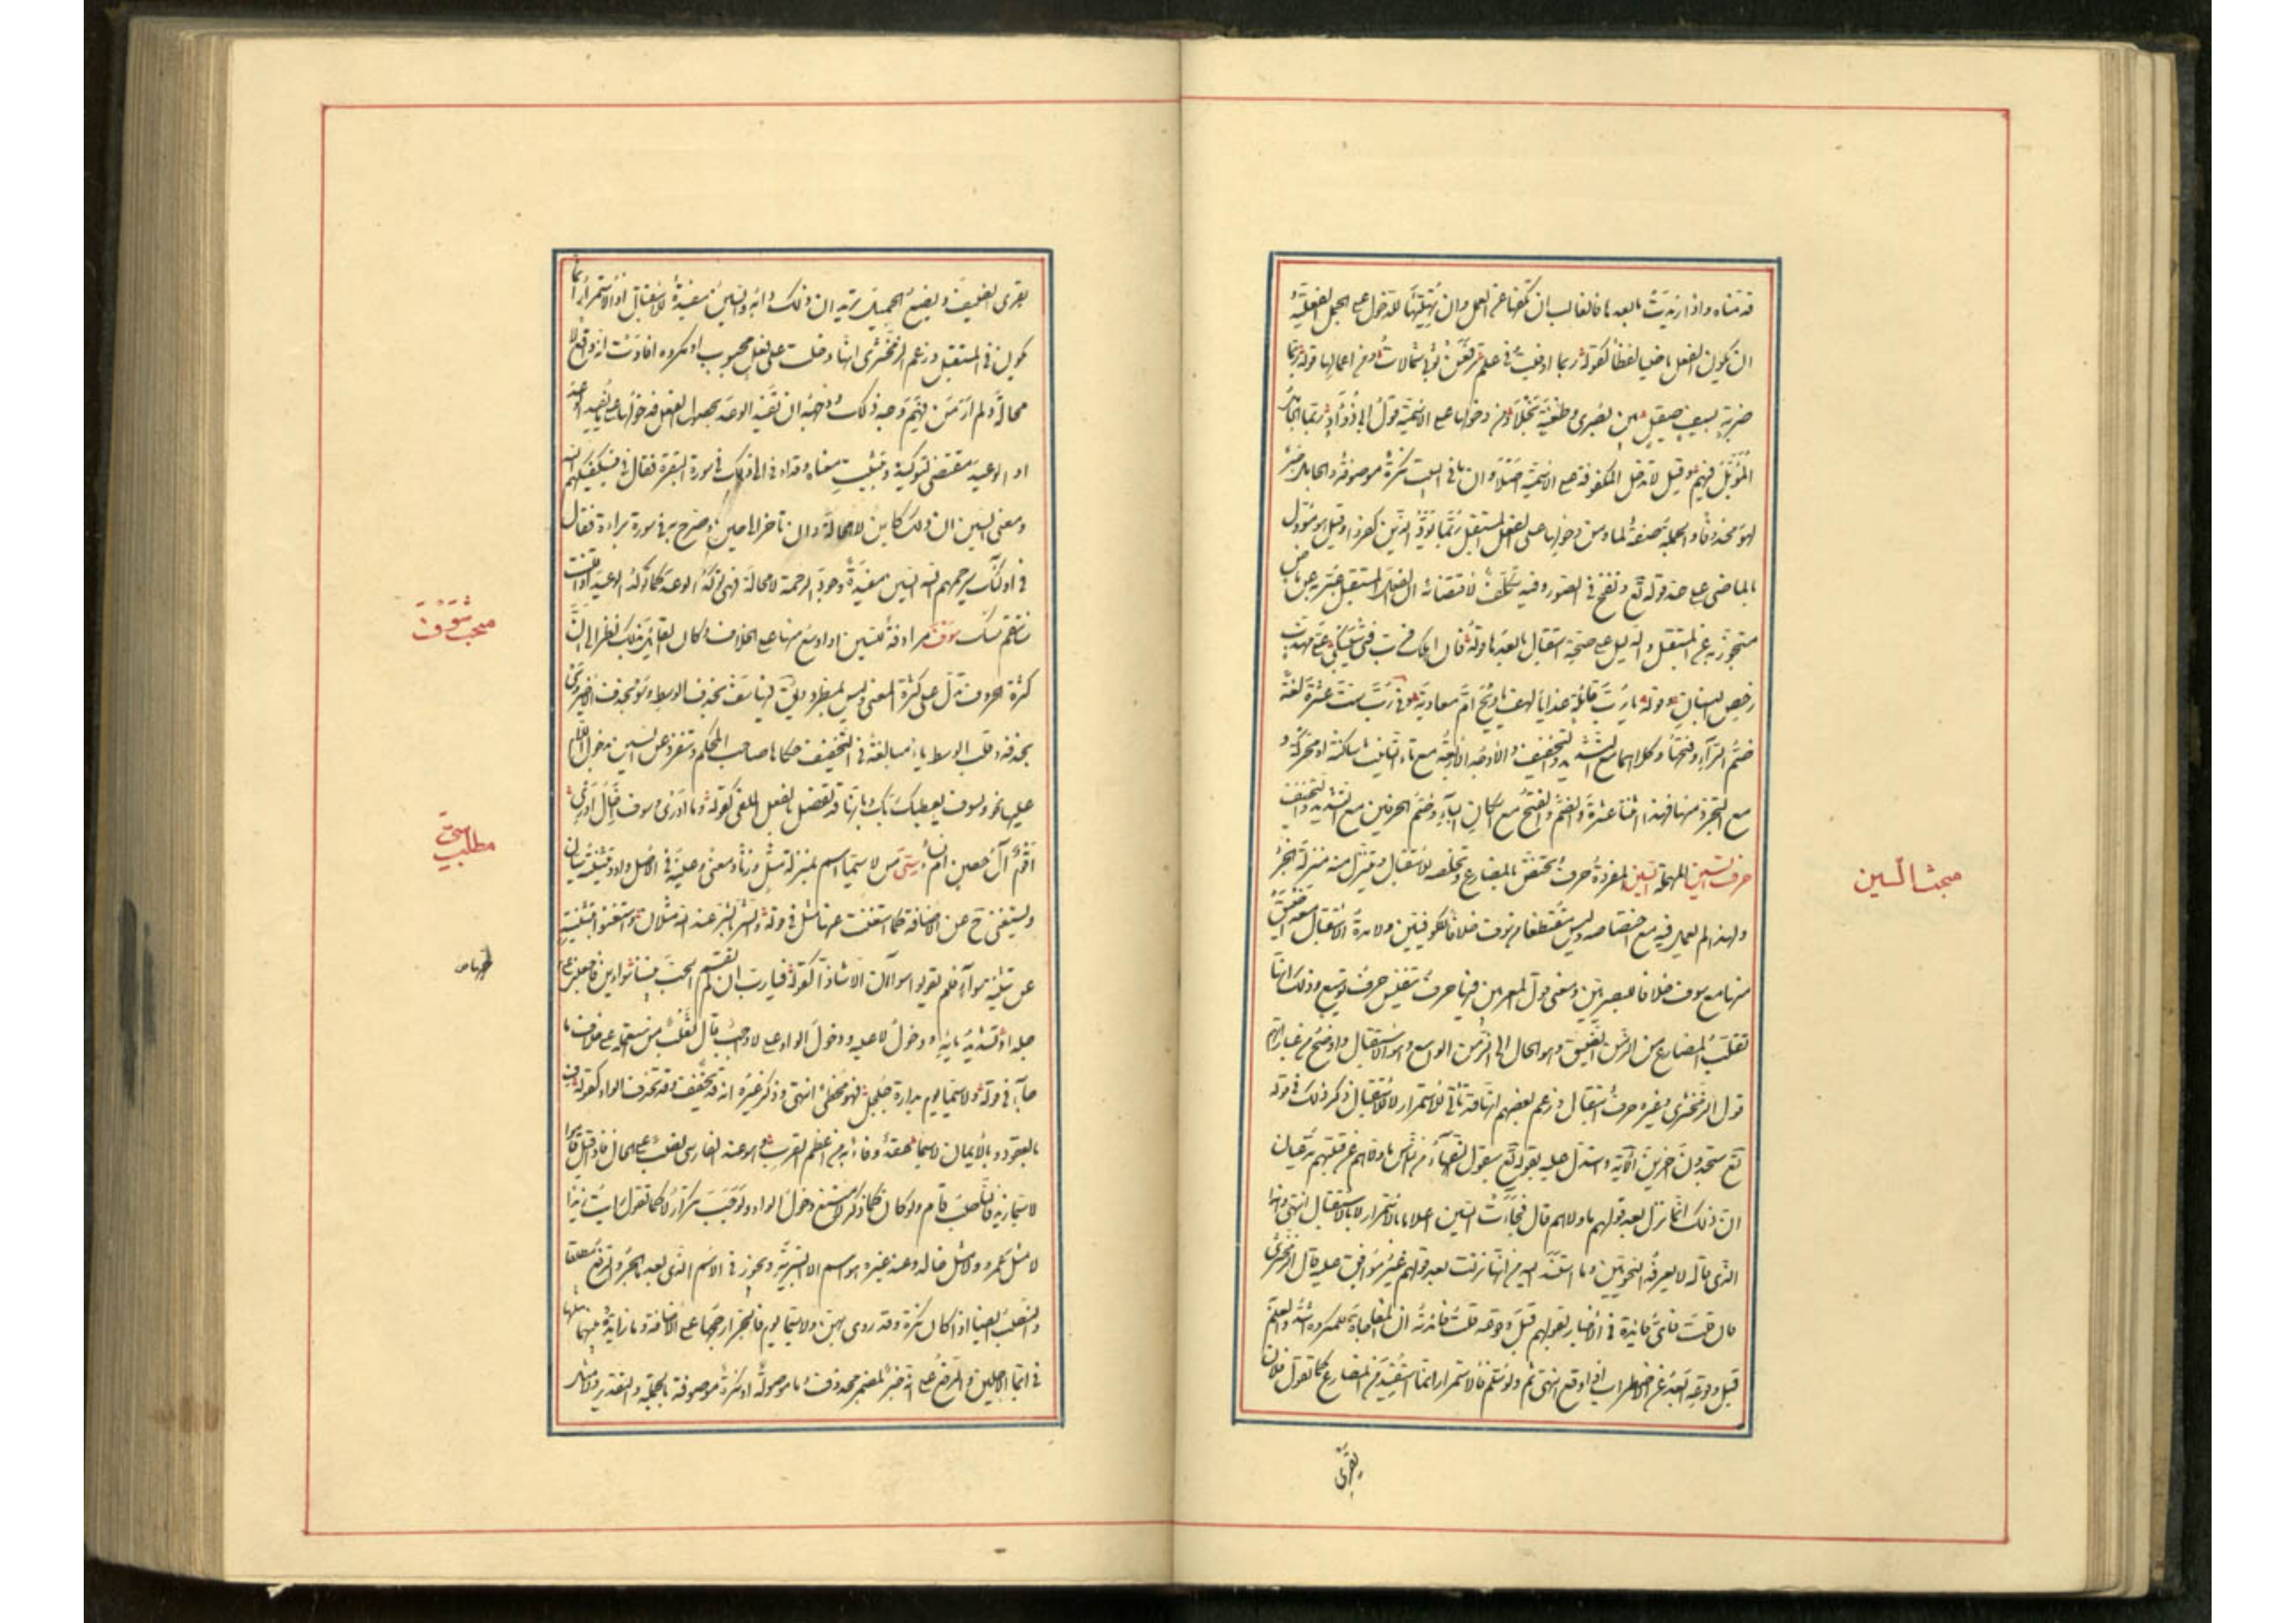 قدمناه واذا زيدت ما بعدها فالغالب ان تكفها عن العمل وان تهيئها للدخول على الجمل الفعلية و
ان يكون الفعل ماضيا لفظا كقوله ربما اوفيت في علم ترفعن ثوبي شمالات ومن اعمالها قوله ربما
ضربة بسيف صيقل بين بصرى وطعنة نجلا ومن دخولها على الاسمية قول ابي دؤاد ربما الجامل
المؤبل فيهم وقيل لا تدخل المكفوفة على الاسمية اصلا وان ما في البيت نكرة موصوفة والجامل خبر
لهو محذوفا والجملة صفة لما ومن دخولها على الفعل المستقبل ربما يود الذين كفروا وقيل هو مؤول
بالماضي على حد قوله تع ونفخ في الصور وفيه تكلف لاقتضائه ان الفعل المستقبل عبر به عن ماض
متجوز به عن المستقبل والدليل على صحة استقبال ما بعدها قوله فان اهلك فرب فتى سيبكي علي مهذب
رخص البنان وقوله يا رب قائلة غدا يا لهف ام معاوية وفي رب ست عشرة لغة
ضم الراء وفتحها وكلاهما مع التشديد والتخفيف والاوجه الاربعة مع تاء التانيث ساكنة او محركة و
مع التجرد منها فهذه اثنتا عشرة والضم والفتح مع اسكان الباء وضم الحرفين مع التشديد والتخفيف
حرف السين المهملة السين المفردة حرف يختص بالمضارع ويخلصه للاستقبال ويتنزل منه منزلة الجزء
ولهذا لم يعمل فيه مع اختصاصه به وليس مقتطعا من سوف خلافا للكوفيين ولا مدة الاستقبال معه اضيق
منها مع سوف خلافا للبصريين ومعنى قول المعربين فيها حرف تنفيس حرف توسيع وذلك انها
تقلب المضارع من الزمن الضيق وهو الحال الى الزمن الواسع وهو الاستقبال واوضح من عبارتهم
قول الزمخشري وغيره حرف استقبال وزعم بعضهم انها قد تاتي للاستمرار لا للاستقبال ذكر ذلك في قوله
تع ستجدون اخرين الاية واستدل عليه بقوله تع سيقول السفهاء من الناس ما ولاهم عن قبلتهم مدعيا ان
ان ذلك انما نزل بعد قولهم ما ولاهم قال فجاءت السين اعلاما بالاستمرار لا بالاستقبال انتهى وهذا
الذي قاله لا يعرفه النحويون وما استند اليه من انها نزلت بعد قولهم غير موافق عليه قال الزمخشري
فان قلت فاي فائدة في الاخبار بقولهم قبل وقوعه قلت فائدته ان المفاجاة للمكروه اشد والعلم
قبل وقوعه ابعد عن الاضطراب اذا وقع انتهى ثم ولو سلم فالاستمرار انما استفيد من المضارع كما تقول فلان
يقري
مبحث السين
يقري الضيف ويصنع الجميل تريد ان ذلك دابه والسين مفيدة للاستقبال اذ الاستمرار انما
يكون في المستقبل وزعم الزمخشري انها اذا دخلت على فعل محبوب او مكروه افادت انه واقع لا
محالة ولم ار من فهم وجه ذلك ووجهه ان تفيد الوعد بحصول الفعل فدخولها على ما يفيد الوعد
او الوعيد مقتض لتوكيده وتثبيت معناه وقد اومأ الى ذلك في سورة البقرة فقال في فسيكفيكهم الله
ومعنى السين ان ذلك كاين لا محالة وان تاخر الى حين وصرح به في سورة براءة فقال
في اولئك سيرحمهم الله السين مفيدة وجود الرحمة لا محالة فهي تؤكد الوعد كما تؤكد الوعيد اذا قلت
سانتقم منك سوف مرادفة للسين او اوسع منها على الخلاف وكان القائل بذلك نظر الى ان
كثرة الحروف تدل على كثرة المعنى وليس بمطرد ويقال فيها سف بحذف الوسط وسو بحذف الاخير وسي
بحذفه وقلب الوسط ياء مبالغة في التخفيف حكاها صاحب المحكم وتنفرد عن السين بدخول اللام
عليها نحو ولسوف يعطيك ربك وبانها قد تفصل بالفعل الملغى كقوله وما ادري وسوف اخال ادري
اقوم آل حصن ام نساء سي من لا سيما اسم بمنزلة مثل وزنا ومعنى وعينه في الاصل واو وتثنيته سيان
وتستغني ح عن الاضافة كما استغنت عنها مثل في قوله والشر بالشر عند الله مثلان واستغنوا بتثنيته
عن تثنية سواء فلم يقولوا سواآن الا شاذا كقوله فيا رب ان لم تقسم الحب بيننا سواءين فاجعلني على
جلدا وتشديد يائه ودخول لا عليه ودخول الواو على لا واجب قال ثعلب من استعمله على خلاف ما
جاء في قوله ولا سيما يوم بدارة جلجل فهو مخطئ انتهى وذكر غيره انه قد يخفف وقد تحذف الواو كقوله ف
بالعقود وبالايمان لا سيما عقد وفاء به من اعظم القرب وهو عند الفارسي نصب على الحال فاذا قيل قاموا
لا سيما زيد فالناصب قام ولو كان كما ذكر لامتنع دخول الواو ولوجب تكرار لا كما تقول رايت زيدا
لا مثل عمرو ولا مثل خالد وعند غيره هو اسم لا التبرية ويجوز في الاسم الذي بعدها الجر والرفع مطلقا
والنصب ايضا اذا كان نكرة وقد روي بهن ولا سيما يوم فالجر ارجحها على الاضافة وما زايدة بينهما مثلها
في ايما الاجلين والرفع على انه خبر لمضمر محذوف وما موصولة او نكرة موصوفة بالجملة والتقدير ولا مثل
مبحث سوف
مطلب سي